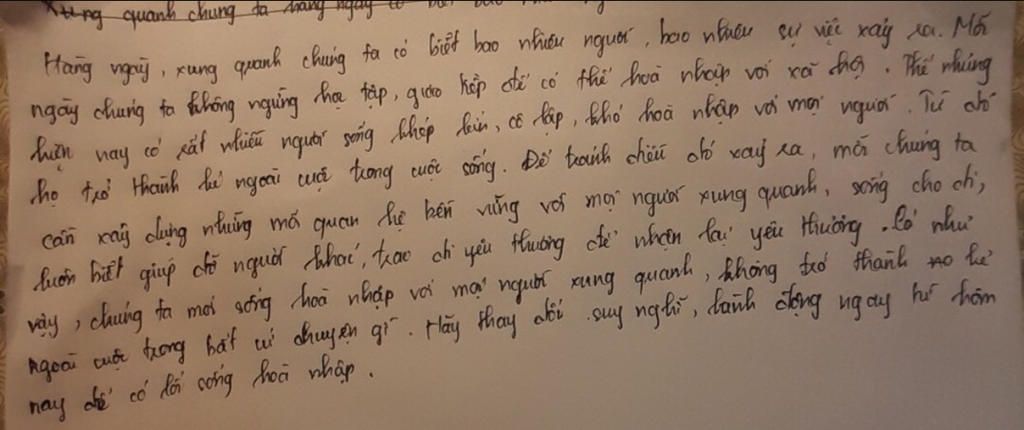 Xung quanh chúng ta hàng ngày có
Hàng ngày, xung quanh chúng ta có biết bao nhiêu người, bao nhiêu sự việc xảy ra. Mỗi
ngày chúng ta không ngừng học tập, giao tiếp để có thể hoà nhập với xã hội. Thế nhưng
hiện nay có rất nhiều người sống khép kín, cô lập, khó hoà nhập với mọi người. Từ đó
họ trở thành kẻ ngoài cuộc trong cuộc sống. Để tránh điều đó xảy ra, mỗi chúng ta
cần xây dựng những mối quan hệ bền vững với mọi người xung quanh, sống cho đi,
luôn biết giúp đỡ người khác, trao đi yêu thương để nhận lại yêu thương. Có như
vậy, chúng ta mới sống hoà nhập với mọi người xung quanh, không trở thành kẻ
ngoài cuộc trong bất cứ chuyện gì. Hãy thay đổi suy nghĩ, hành động ngay từ hôm
nay để có lối sống hoà nhập.